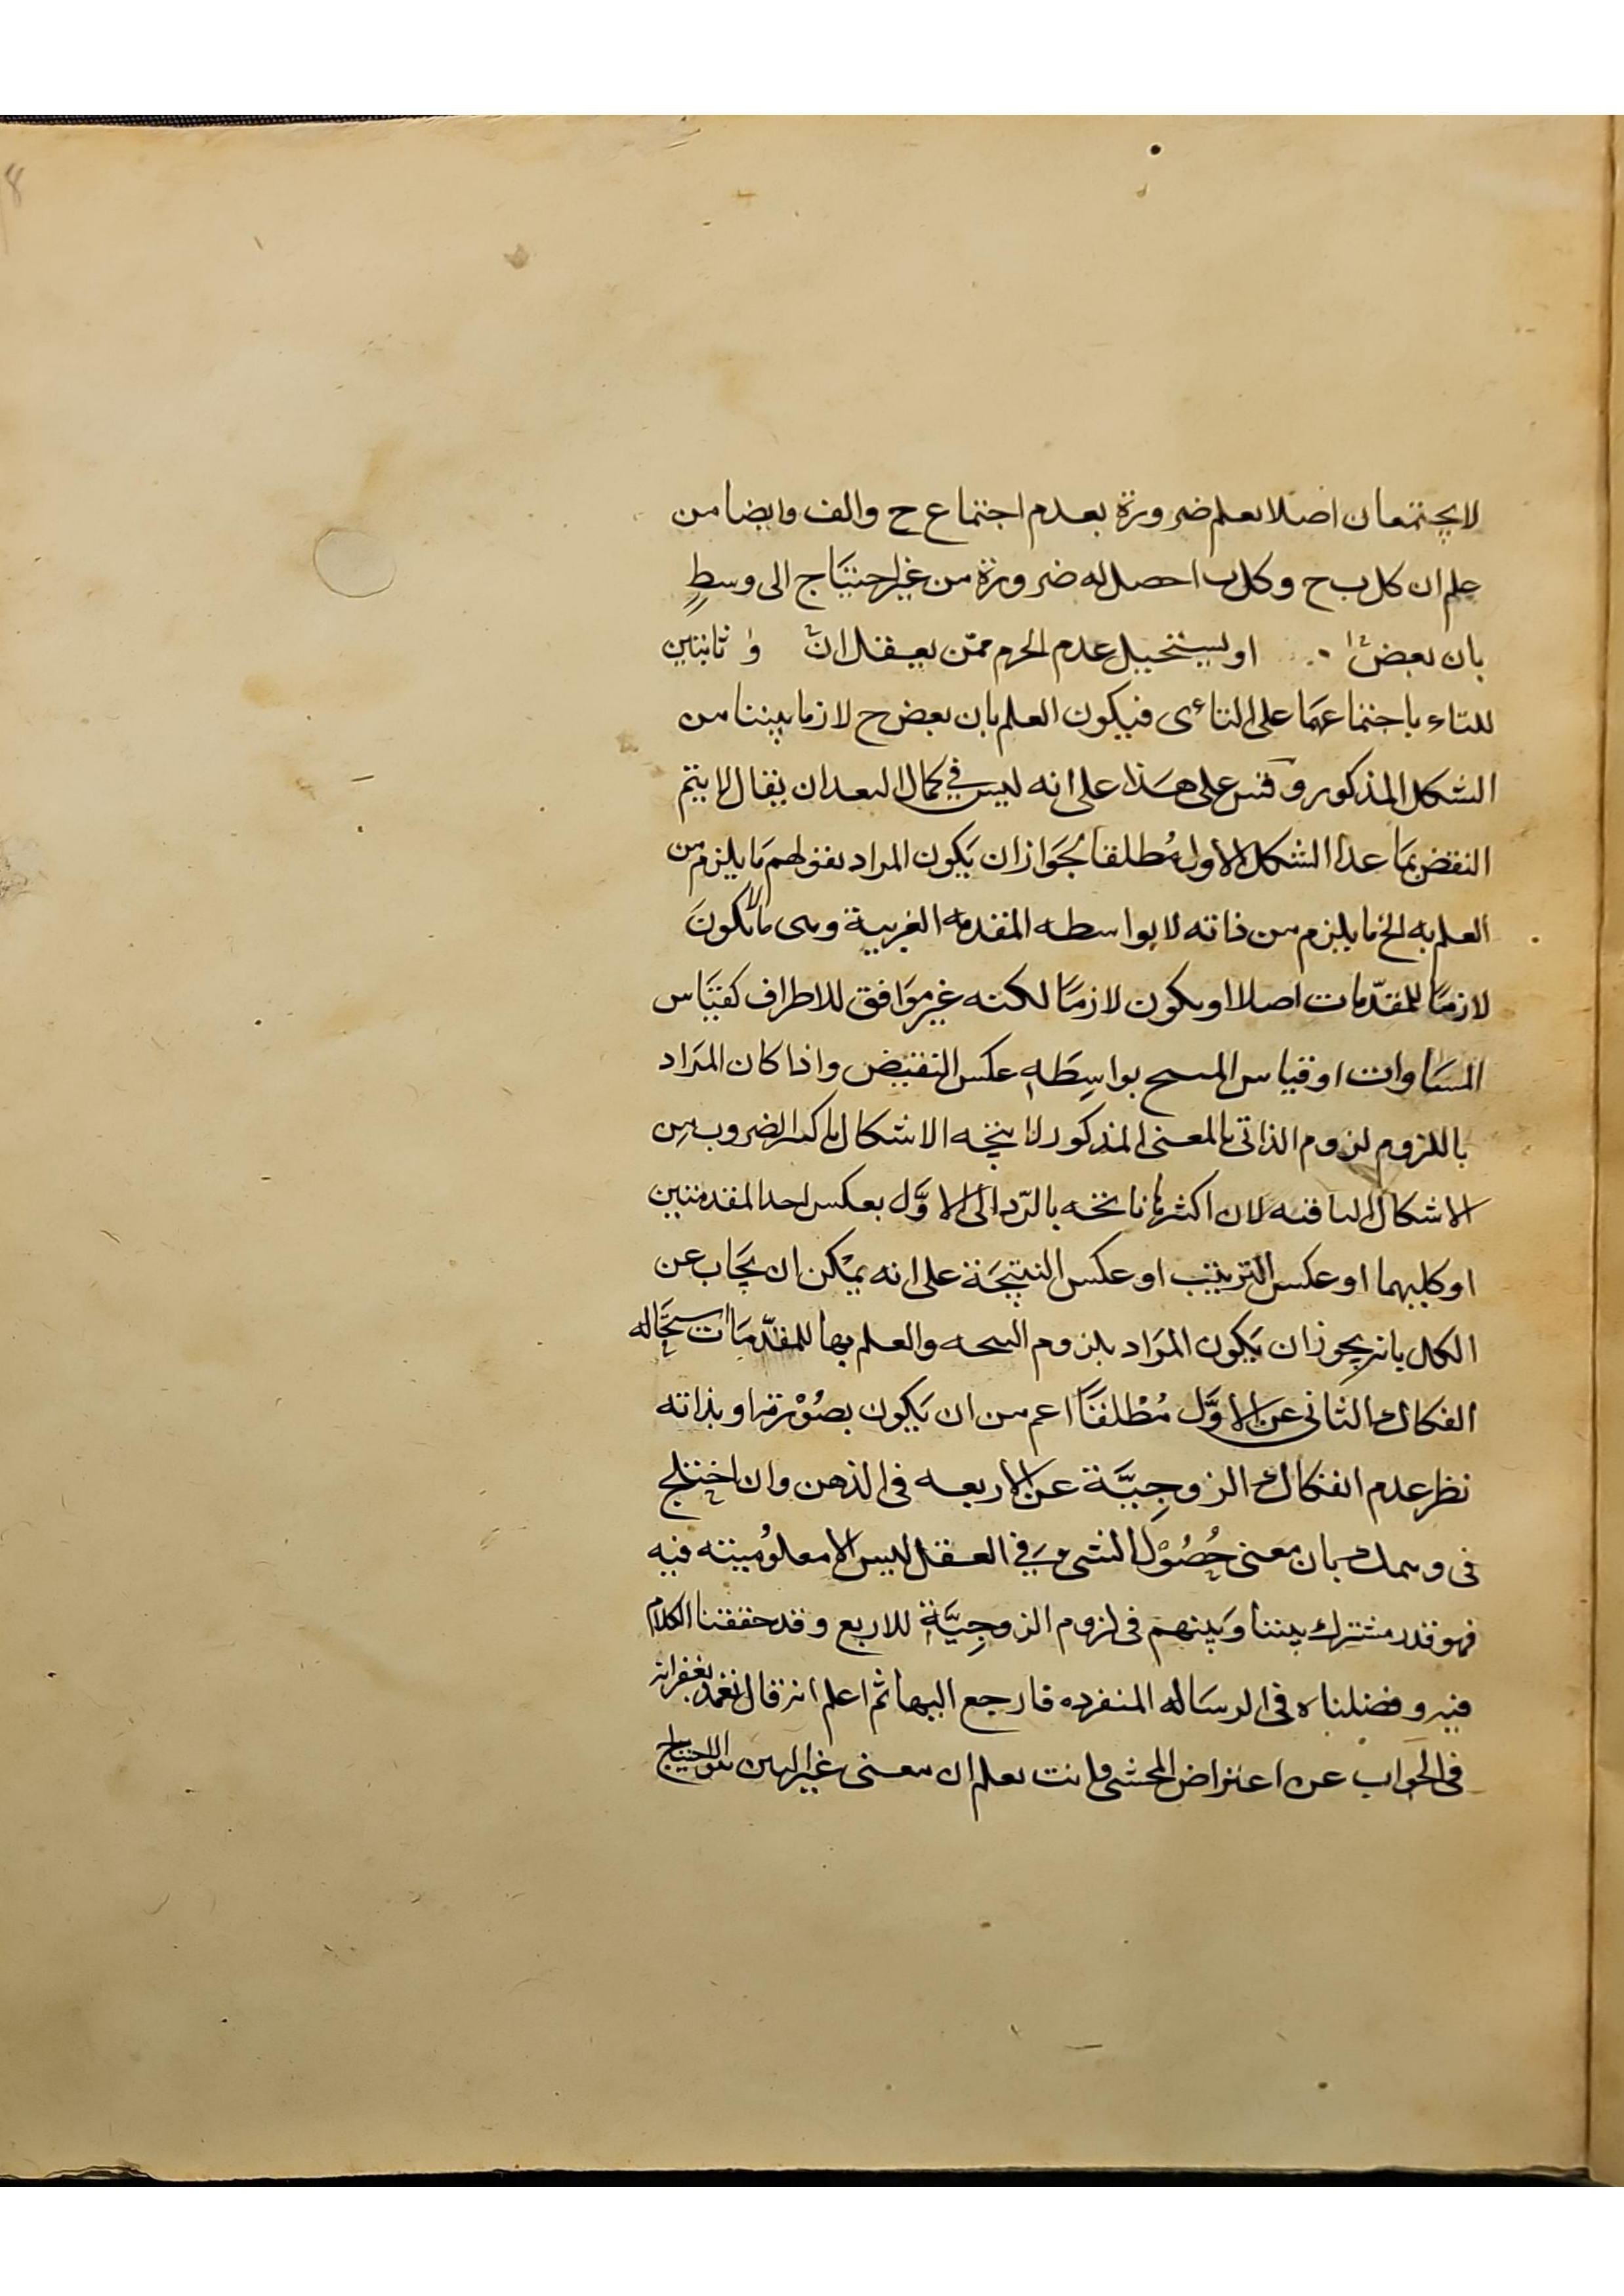 لا يجتمعان اصلا يعلم ضرورة بعدم اجتماع ح والف وايضا من
علم ان كل ب ح وكل ب ا حصل له ضرورة من غير احتياج الى وسطٍ
بان بعض او يستحيل عدم الجزم ممّن يعقل ان ثابتين
للتاء باجتماعهما على التاءى فيكون العلم بان بعض ح لازما بيننا من
الشكل المذكور وقس على هذا على انه ليس في كمال البعد ان يقال لا يتم
النقض بما عدا الشكل الاول مُطلقا لجَواز ان يَكون المراد بقولهم مَا يلزم من
العلم به الخ ما يلزم من ذاته لا بواسطه المقدمه الغريبة وهى ما لا يكونَ
لازمًا للمقدّمات اصلا او يكون لازمًا لكنه غير موَافق للاطراف كقيَاس
المسَاوات او قياس بواسِطَهِ عكس النقيض واذا كان المرَاد
باللزوم لزوم الذاتى بالمعنى المذكور لا ينتجه الاشكال باكثر الضروب مِن
الاشكال الباقيه لان اكثرها ناتجه بالرّد الى الاوَّل بعكس احد المقدمتين
او كليهما او عكس الترتيب او عكس النتيجَة على انه يمْكن ان يجَاب عن
الكل بانه يجوز ان يَكون المرَاد بلزوم النتيجه والعلم بها للمقدّمَات استحَاله
انفكاك الثانى عن الاوَّل مُطْلقًا اعم من ان يَكون بصُوْرته او بذاته
نظر عدم انفكاك الزوجِيَّة عن الاربعه فى الذهن وان اختلج
فى وهمك بان معنى حُصُوْل الشىء فِي العقل ليس الا معلوُميته فيه
فهو قدر مشترك بيننا وَبينهم فى لزوم الزوجِيَّة للاربع وقد حققنا الكلام
فيه وفصلناه فى الرسَاله المنفرده فارجع اليها ثم اعلم انه قال تغمد بغفرانه
فى الجواب عن اعتراض المحشى وانت تعلم ان معنى غير البين هو الاحتياج